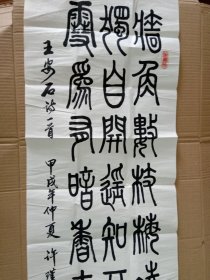 牆角數枝梅凌
獨自開遥知不
雪爲有暗香来
王安石诗一首 甲戌年仲夏 许